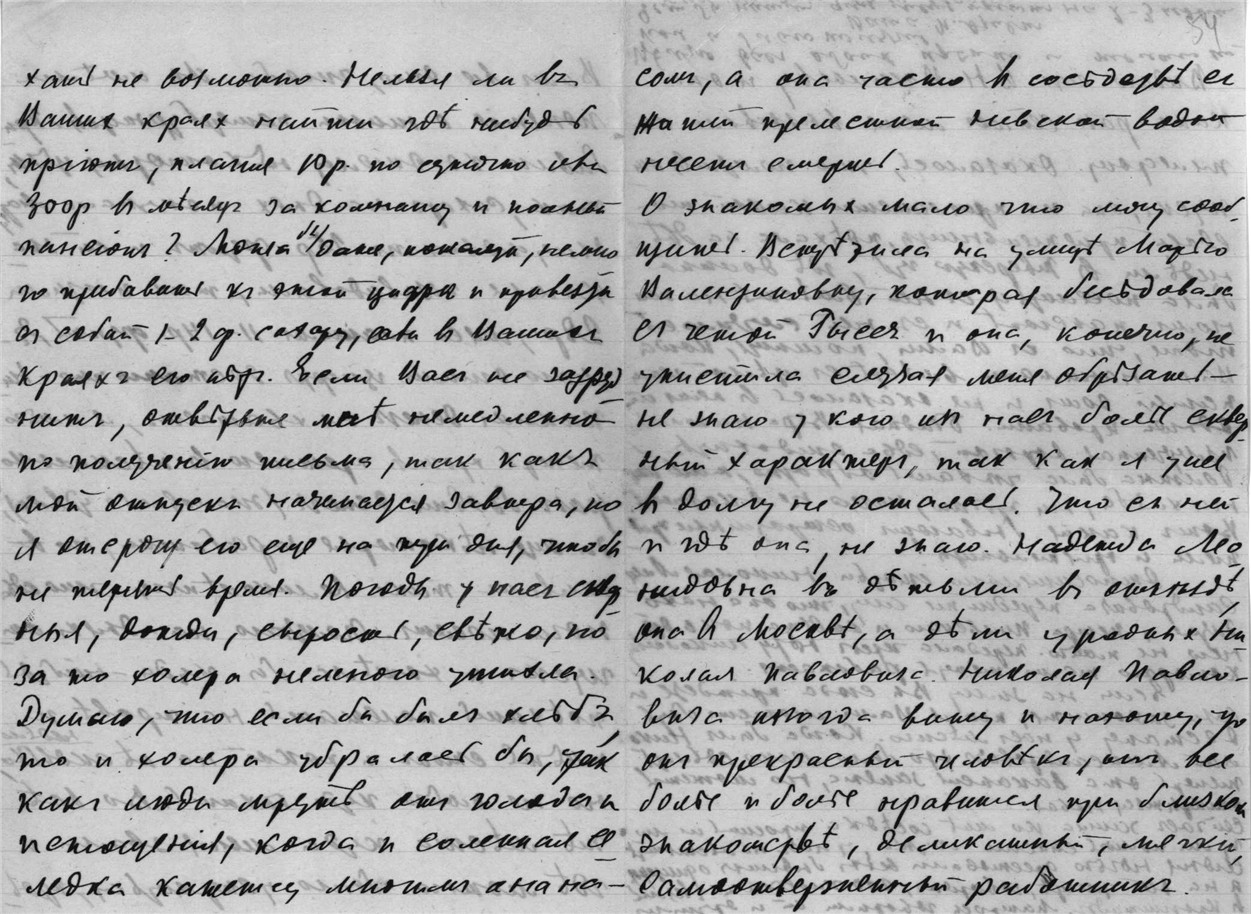 хать не возможно. Нельзя ли въ
Вашихъ краяхъ найти гдѣ нибудь
пріютъ, платя 10 р. по суточно или
300 р въ мѣсяцъ за комнату и полный
пансіонъ? Можно даже, пожалуй, немно
го прибавить къ этой цифрѣ и привезти
съ собой 1-2 ф. сахару, если въ Вашихъ
краяхъ его нѣтъ. Если Васъ не затруд
нитъ, отвѣтьте мнѣ немедленно
по полученію письма, такъ какъ
мой отпускъ начинается завтра, но
я отсрочу его еще на три дня, чтобы
не терять время. Погоды у насъ сквер
ныя, дожди, сырость, свѣжо, но
за то холера немного утихла.
Думаю, что если бы былъ хлѣбъ,
то и холера убралась бы, такъ
какъ люди мрутъ отъ голода и
истощенія, когда и соленая се
ледка кажется многимъ анана-
34
сомъ, а она часто въ сосѣдствѣ съ
нашей прелестной невской водой
несетъ смерть.
О знакомыхъ мало что могу сооб
щить. Встрѣтила на улицѣ Марію
Валентиновну, которая бесѣдовала
съ четой Гыссъ и она, конечно, не
упустила случая меня обрѣзать —
не знаю у кого изъ насъ болѣе сквер
ный характеръ, такъ какъ я у нея
въ долгу не осталась. Что съ ней
и гдѣ она, не знаю. Надежда Лео
нидовна съ дѣтьми въ отъѣздѣ,
она въ Москвѣ, а дѣти у родныхъ Ни
колая Павловича. Николая Павло-
вича иногда вижу и нахожу, что
онъ прекрасный человѣкъ, онъ все
болѣе и болѣе нравится при близкомъ
знакомствѣ, деликатный, мягкій,
самоотверженный работникъ.